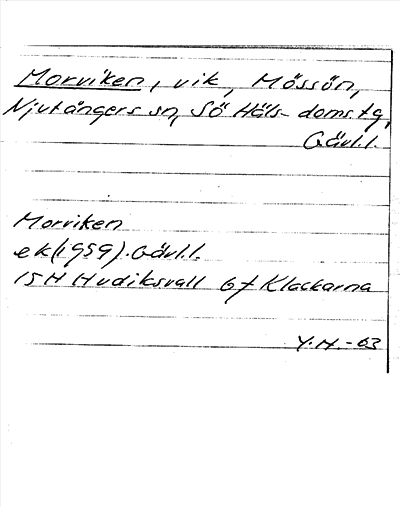 Morviken, vik, Mössön,
Njutångers sn, Sö Häls- doms.tg,
Gävl.l.
Morviken
ek(1959).Gävl.l.
15H Hudiksvall 6f Klackarna
Y.H.-63